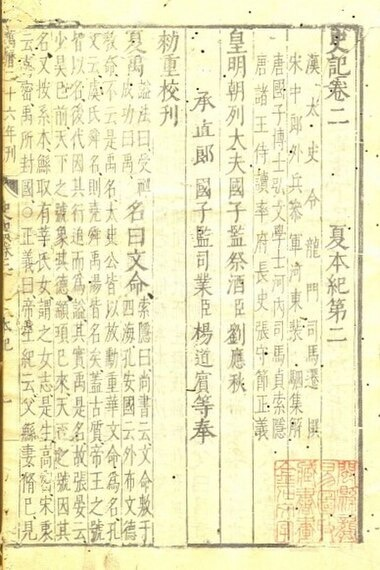 史記卷二　夏本紀第二
漢太史令龍門司馬遷撰
宋中郎外兵參軍河東裴駰集解
唐國子博士弘文學士河內司馬貞索隱
唐諸王侍讀率府長史張守節正義
皇明朝列大夫國子監祭酒臣劉應秋
承直郎國子監司業臣楊道賓等奉
勑重校刊
夏禹
謚法曰受禪
成功曰禹
名曰文命
索隱曰尚書云文命敷于
四海孔安國云外布文德
教命不云是禹名太史公皆以放勳重華文命為名孔
又云虞氏舜名則堯舜禹湯皆名矣蓋古質帝王之號
皆以名後代因其行追而為謚其實禹是名故張晏云
少昊已前天下之號象其德顓頊已來天下之號因其
名又按系本鯀取有莘氏女謂之女志是生高密宋衷
云高密禹所封國〇正義曰帝王紀云父鯀妻脩已見
二十六年刊
史記卷二
本紀